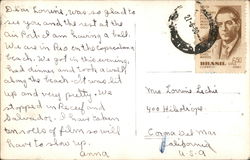 Dear Lorraine, Was so glad to
see you and the rest at the
air Port. I am having a ball.
We are in Rio on the Copacabana
beach. We got in this evening,
had dinner and took a walk
along the beach - it was lit
up and very pretty. We
stopped in Recife and
Salvador. I have taken
on rolls of film so will
have to slow up.
Anna
BRASIL
Miss Lorraine
400 Heliotrope
Corona del Mar
California
U-S-A